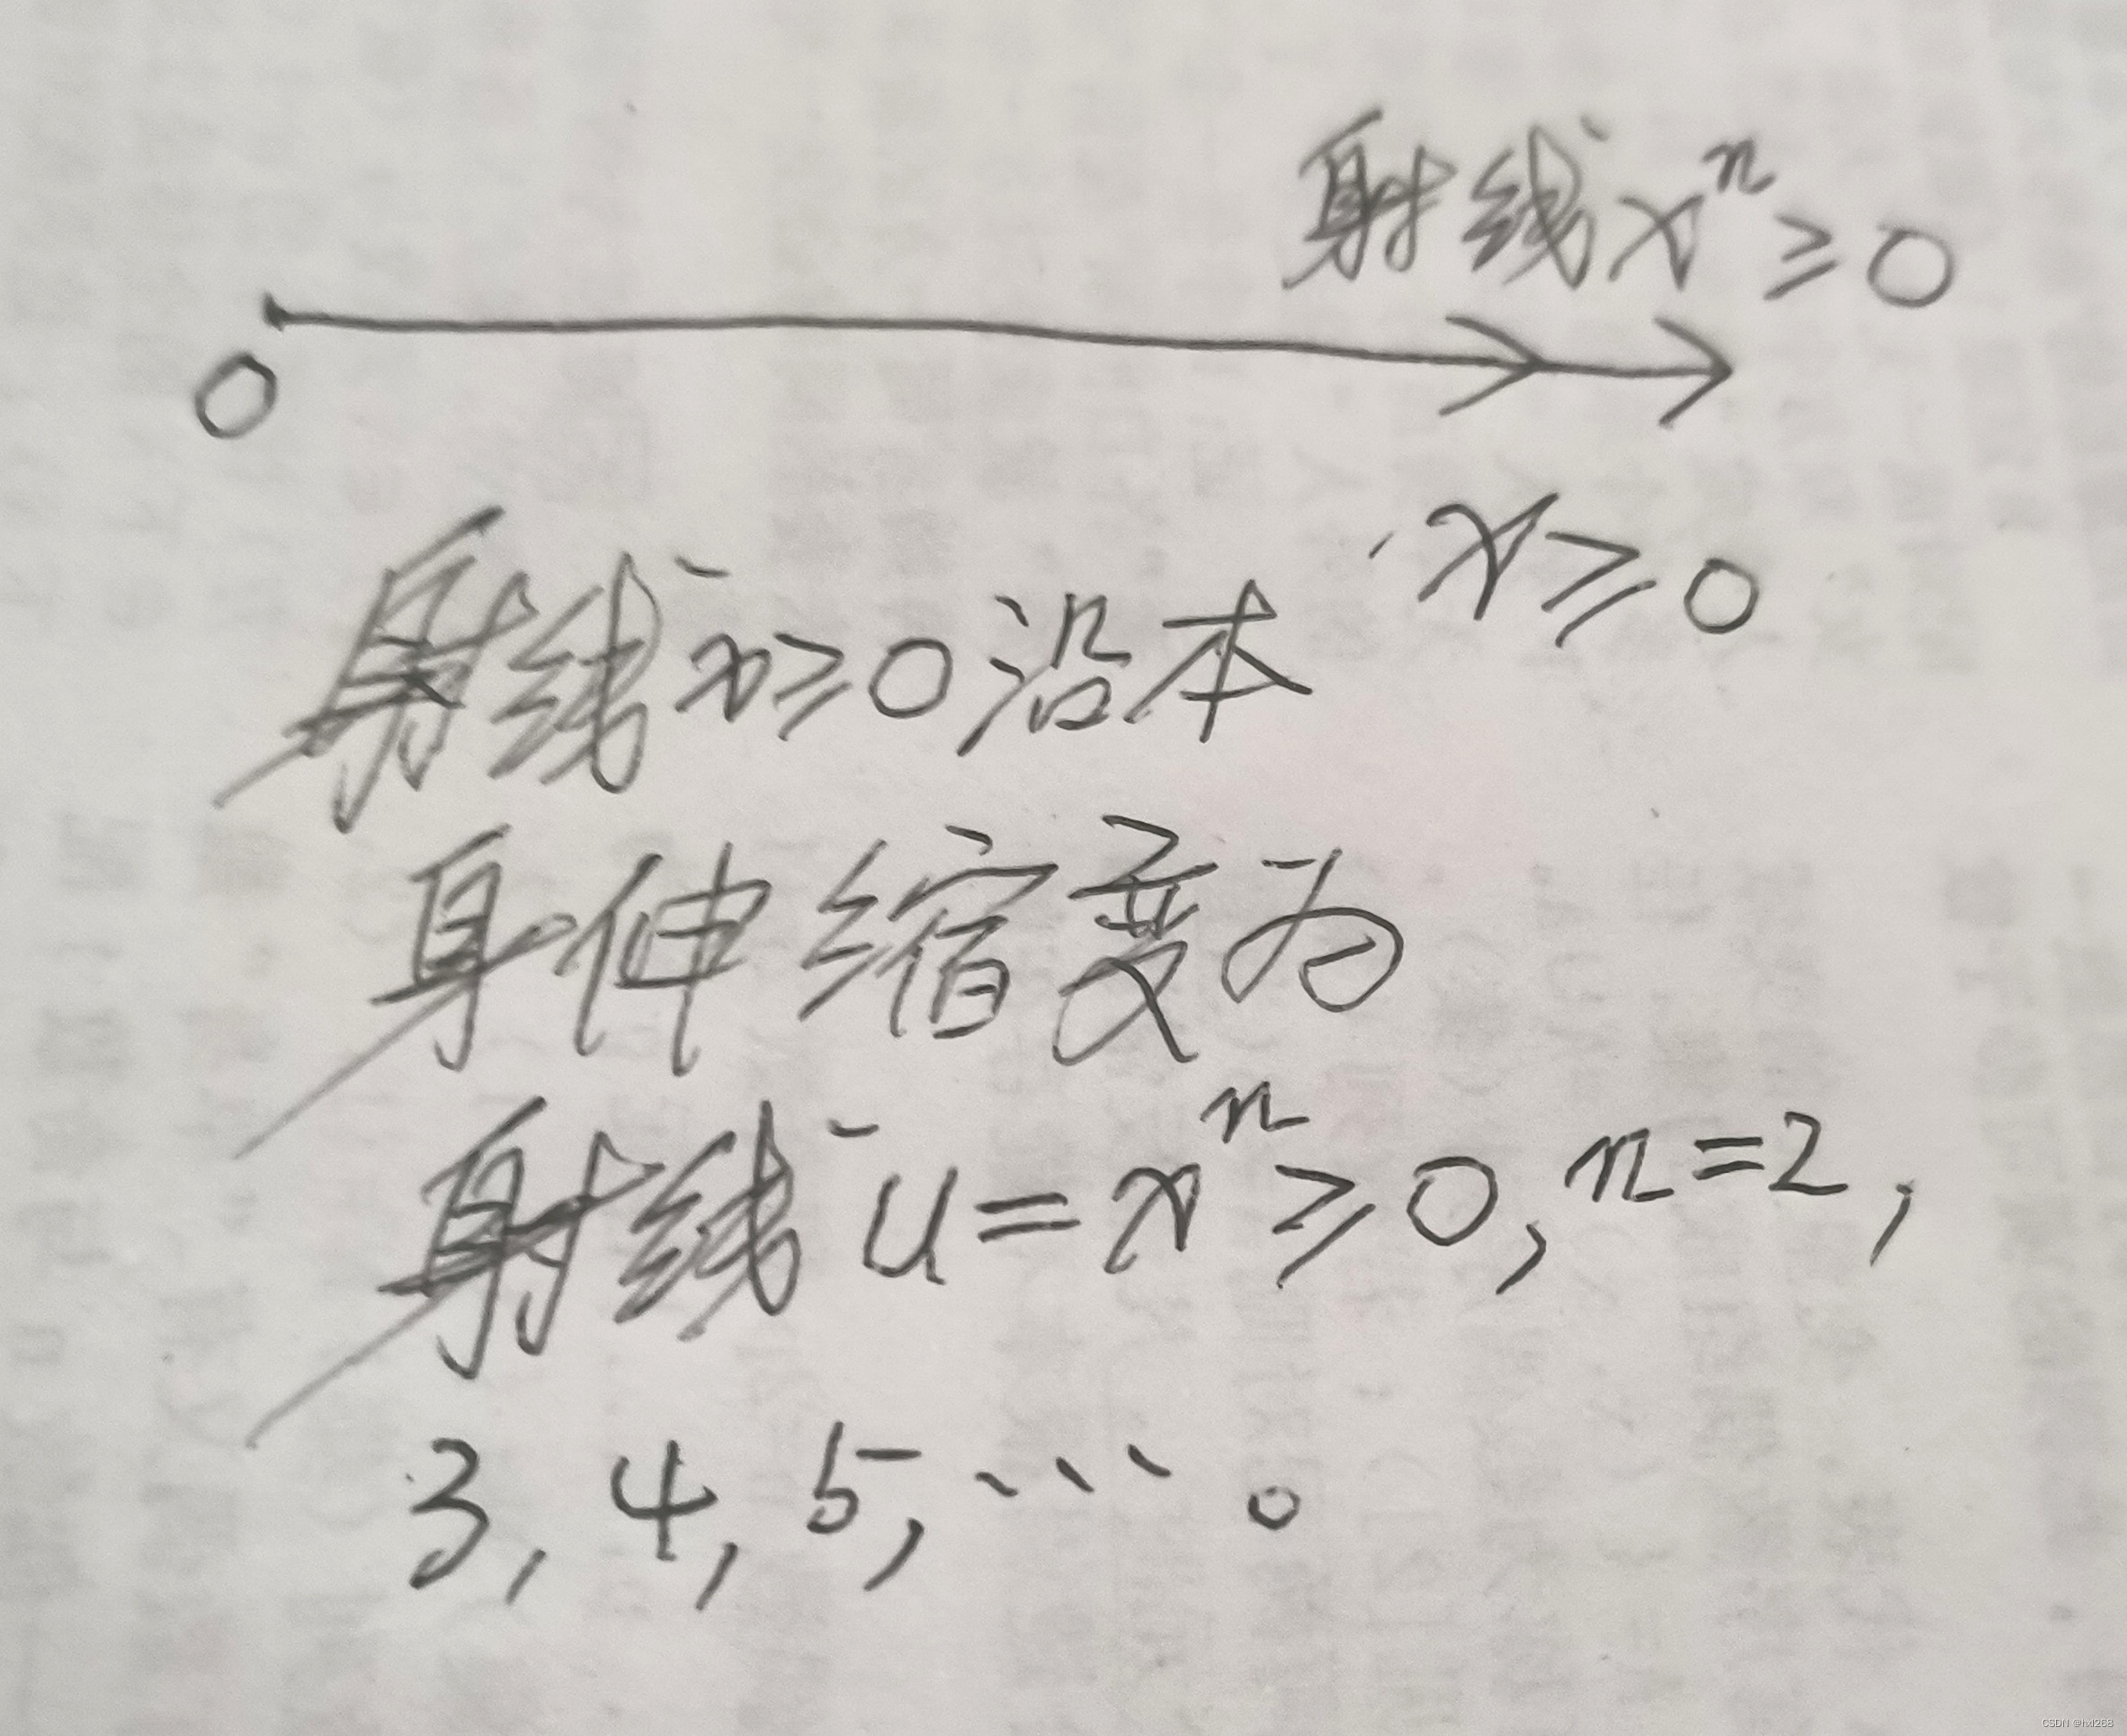 射线xⁿ≥0
0
x≥0
射线x≥0沿本
身伸缩变为
射线u=xⁿ≥0,n=2,
3,4,5,…。
CSDN @hxl268